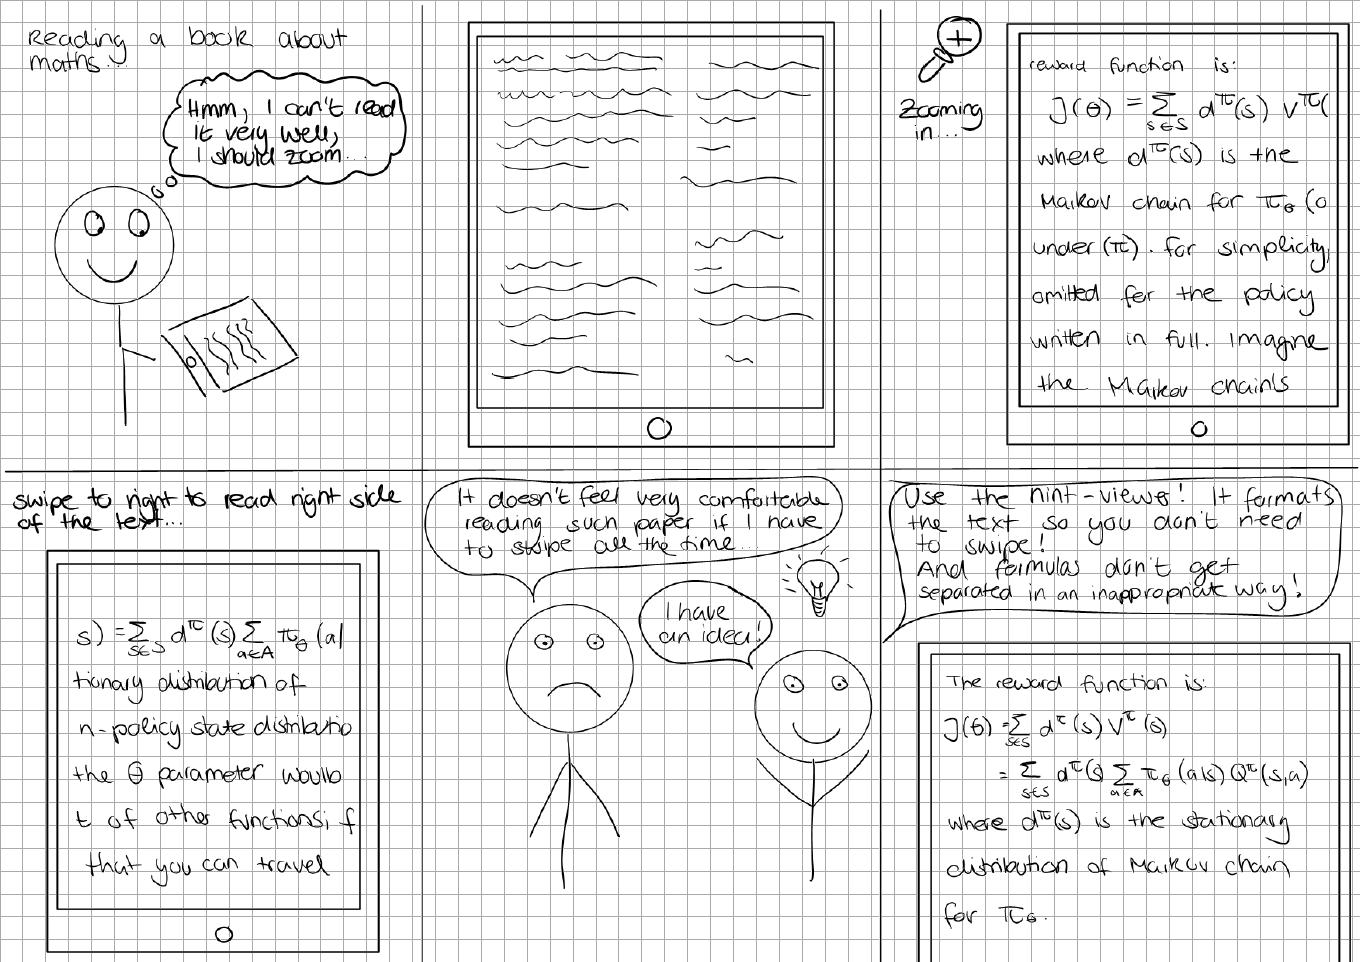 Reading a book about
maths...
Hmm, I can't read
it very well,
I should zoom...
Zooming
in...
reward function is:
J(θ) = ∑ s∈S d^π(s) V^π(
where d^π(s) is the
Markov chain for π_θ (o
under (π). for simplicity,
omitted for the policy
written in full. Imagine
the Markov chain's
swipe to right to read right side
of the text...
s) = ∑ s∈S d^π(s) ∑ a∈A π_θ (a|
tionary distribution of
n-policy state distributio
the θ parameter would
t of other functions; f
that you can travel
It doesn't feel very comfortable
reading such paper if I have
to swipe all the time...
I have
an idea!
Use the hint-viewer! It formats
the text so you don't need
to swipe!
And formulas don't get
separated in an inappropriate way!
The reward function is:
J(θ) = ∑ s∈S d^π(s) V^π(s)
= ∑ s∈S d^π(s) ∑ a∈A π_θ (a|s) Q^π(s,a)
where d^π(s) is the stationary
distribution of Markov chain
for π_θ.